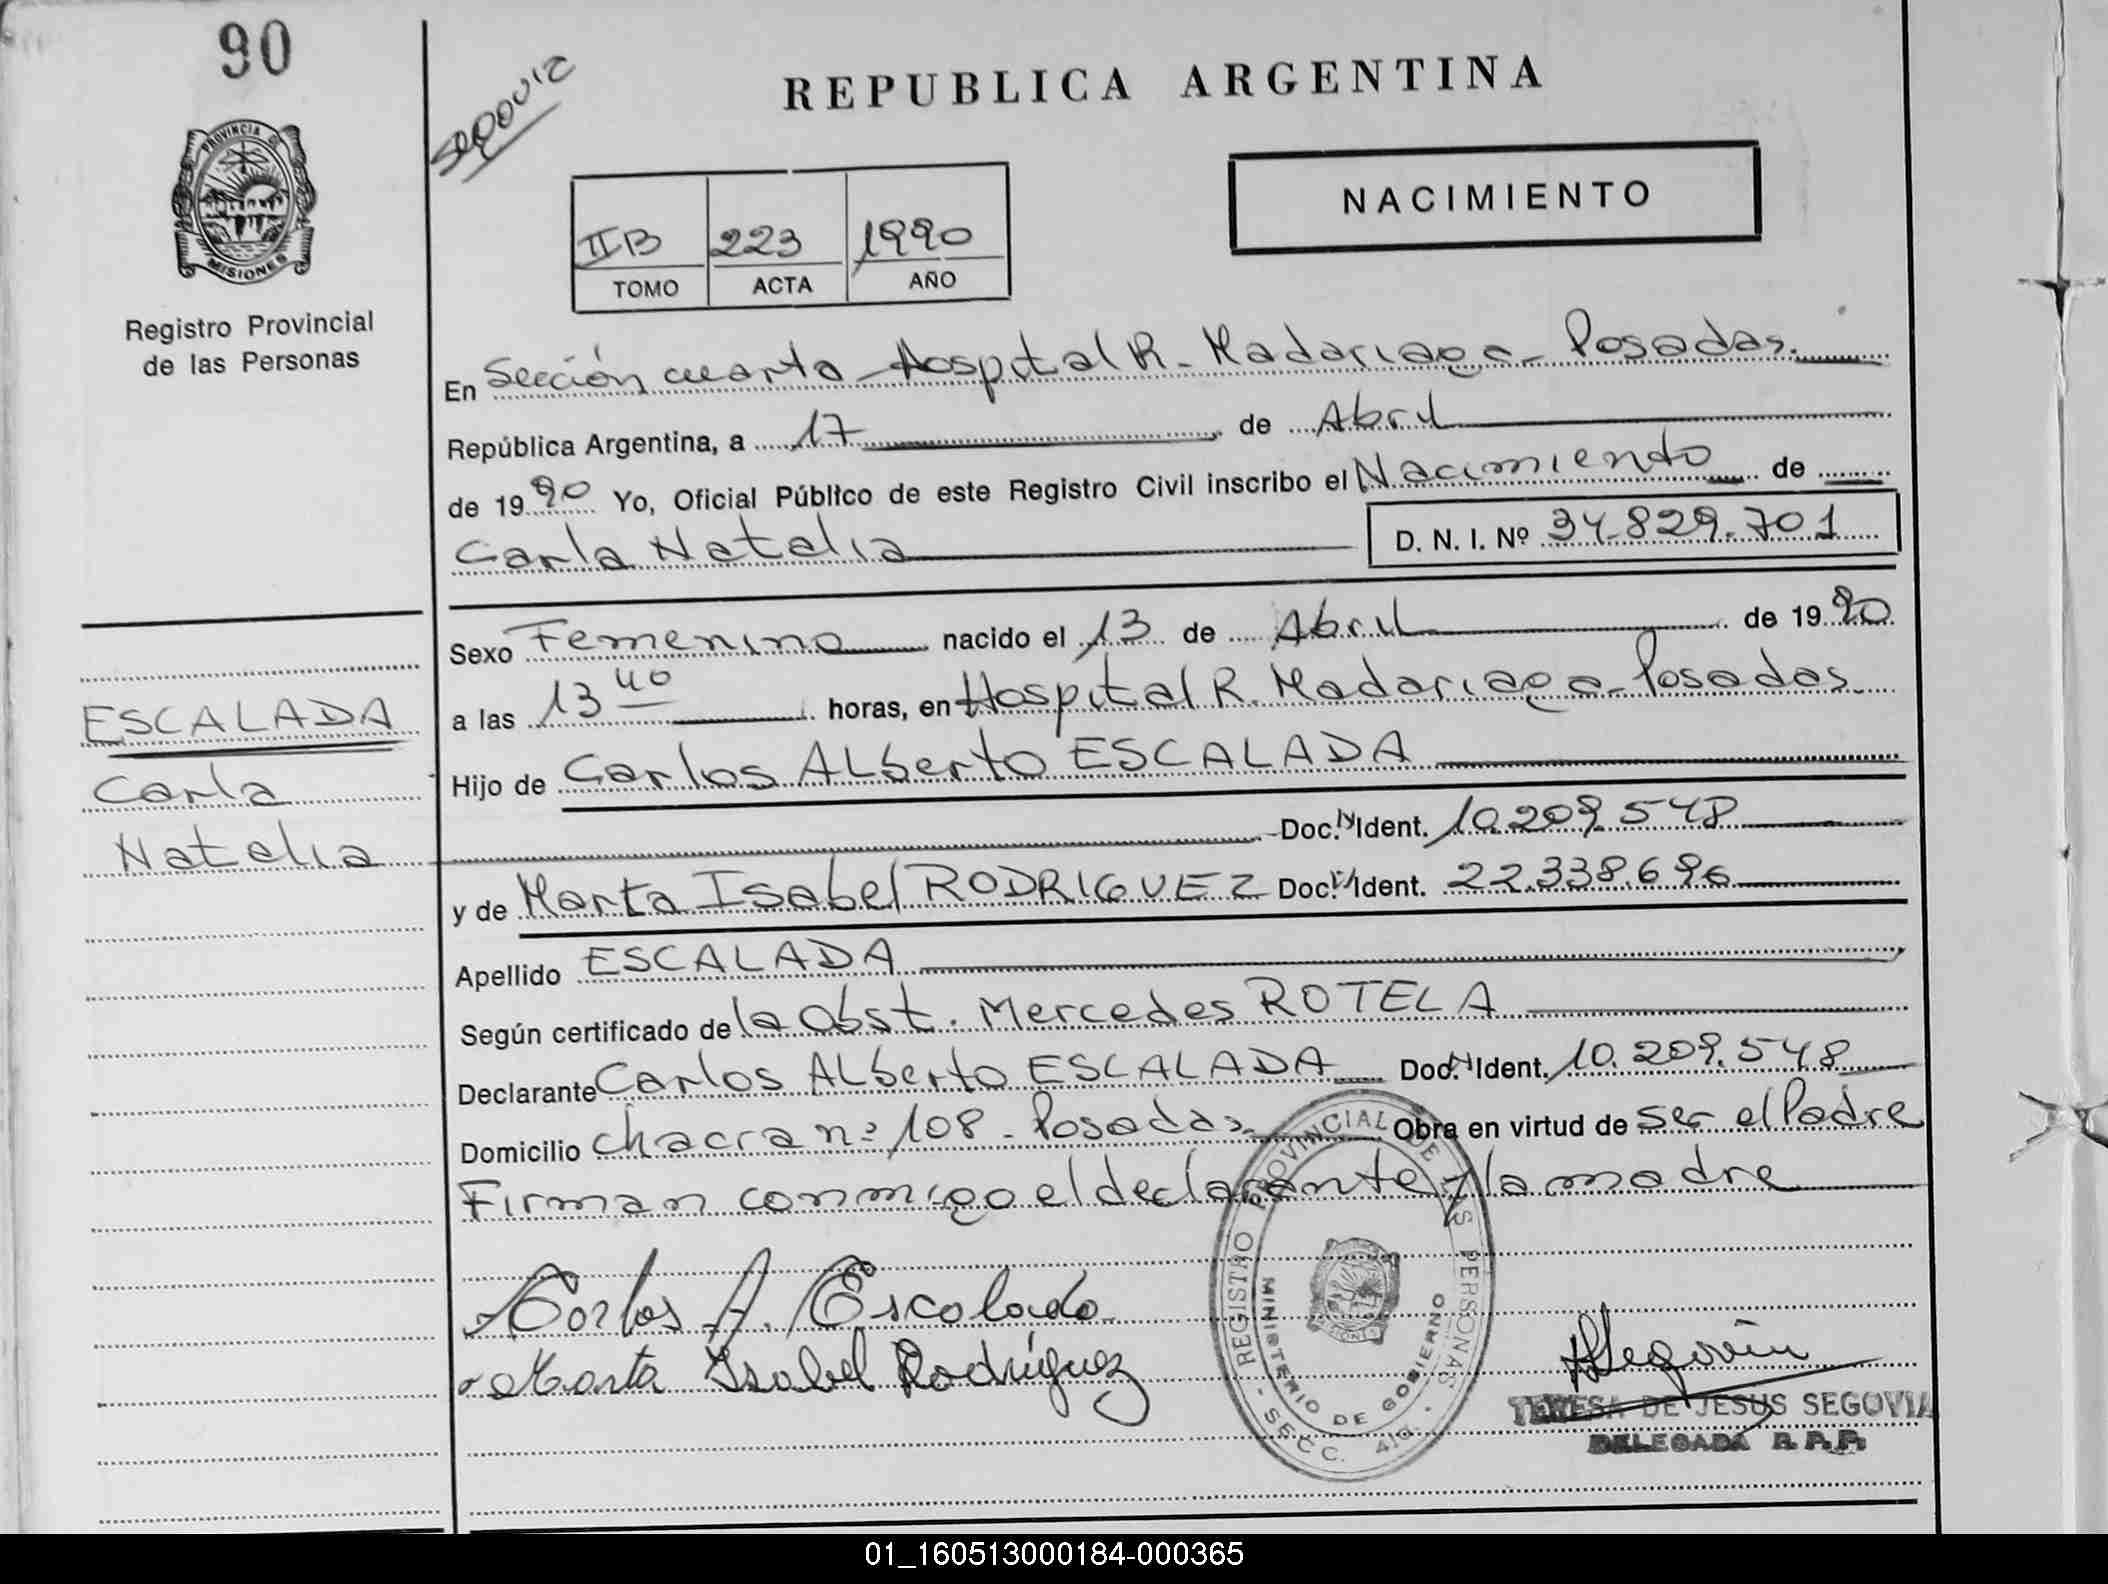 90
segovia
REPUBLICA ARGENTINA
NACIMIENTO
IIB 223 1990
TOMO ACTA AÑO
PROVINCIA DE
MISIONES
Registro Provincial
de las Personas
En Sección cuarta - Hospital R. Madariaga - Posadas.
República Argentina, a 17 de Abril
de 1990 Yo, Oficial Público de este Registro Civil inscribo el Nacimiento de
Carla Natalia D. N. I. Nº 34.829.701
Sexo Femenino nacido el 13 de Abril de 1990
a las 13 40 horas, en Hospital R. Madariaga - Posadas
Hijo de Carlos ALberto ESCALADA
Doc. N. Ident. 10.209.548
y de Marta Isabel RODRIGUEZ Doc. N. Ident. 22.338.696
Apellido ESCALADA
Según certificado de la obst. Mercedes ROTELA
Declarante Carlos ALberto ESCALADA Doc. N. Ident. 10.209.548
Domicilio chacra nº 108 - Posadas Obra en virtud de ser el Padre
Firman conmigo el declarante y la madre
ESCALADA
Carla
Natalia
Carlos A. Escalada
Marta Isabel Rodríguez
REGISTRO PROVINCIAL DE LAS PERSONAS
MINISTERIO DE GOBIERNO
- SECC. 4ta. -
Segovia
TERESA DE JESUS SEGOVIA
DELEGADA R. P. P.
01_160513000184-000365